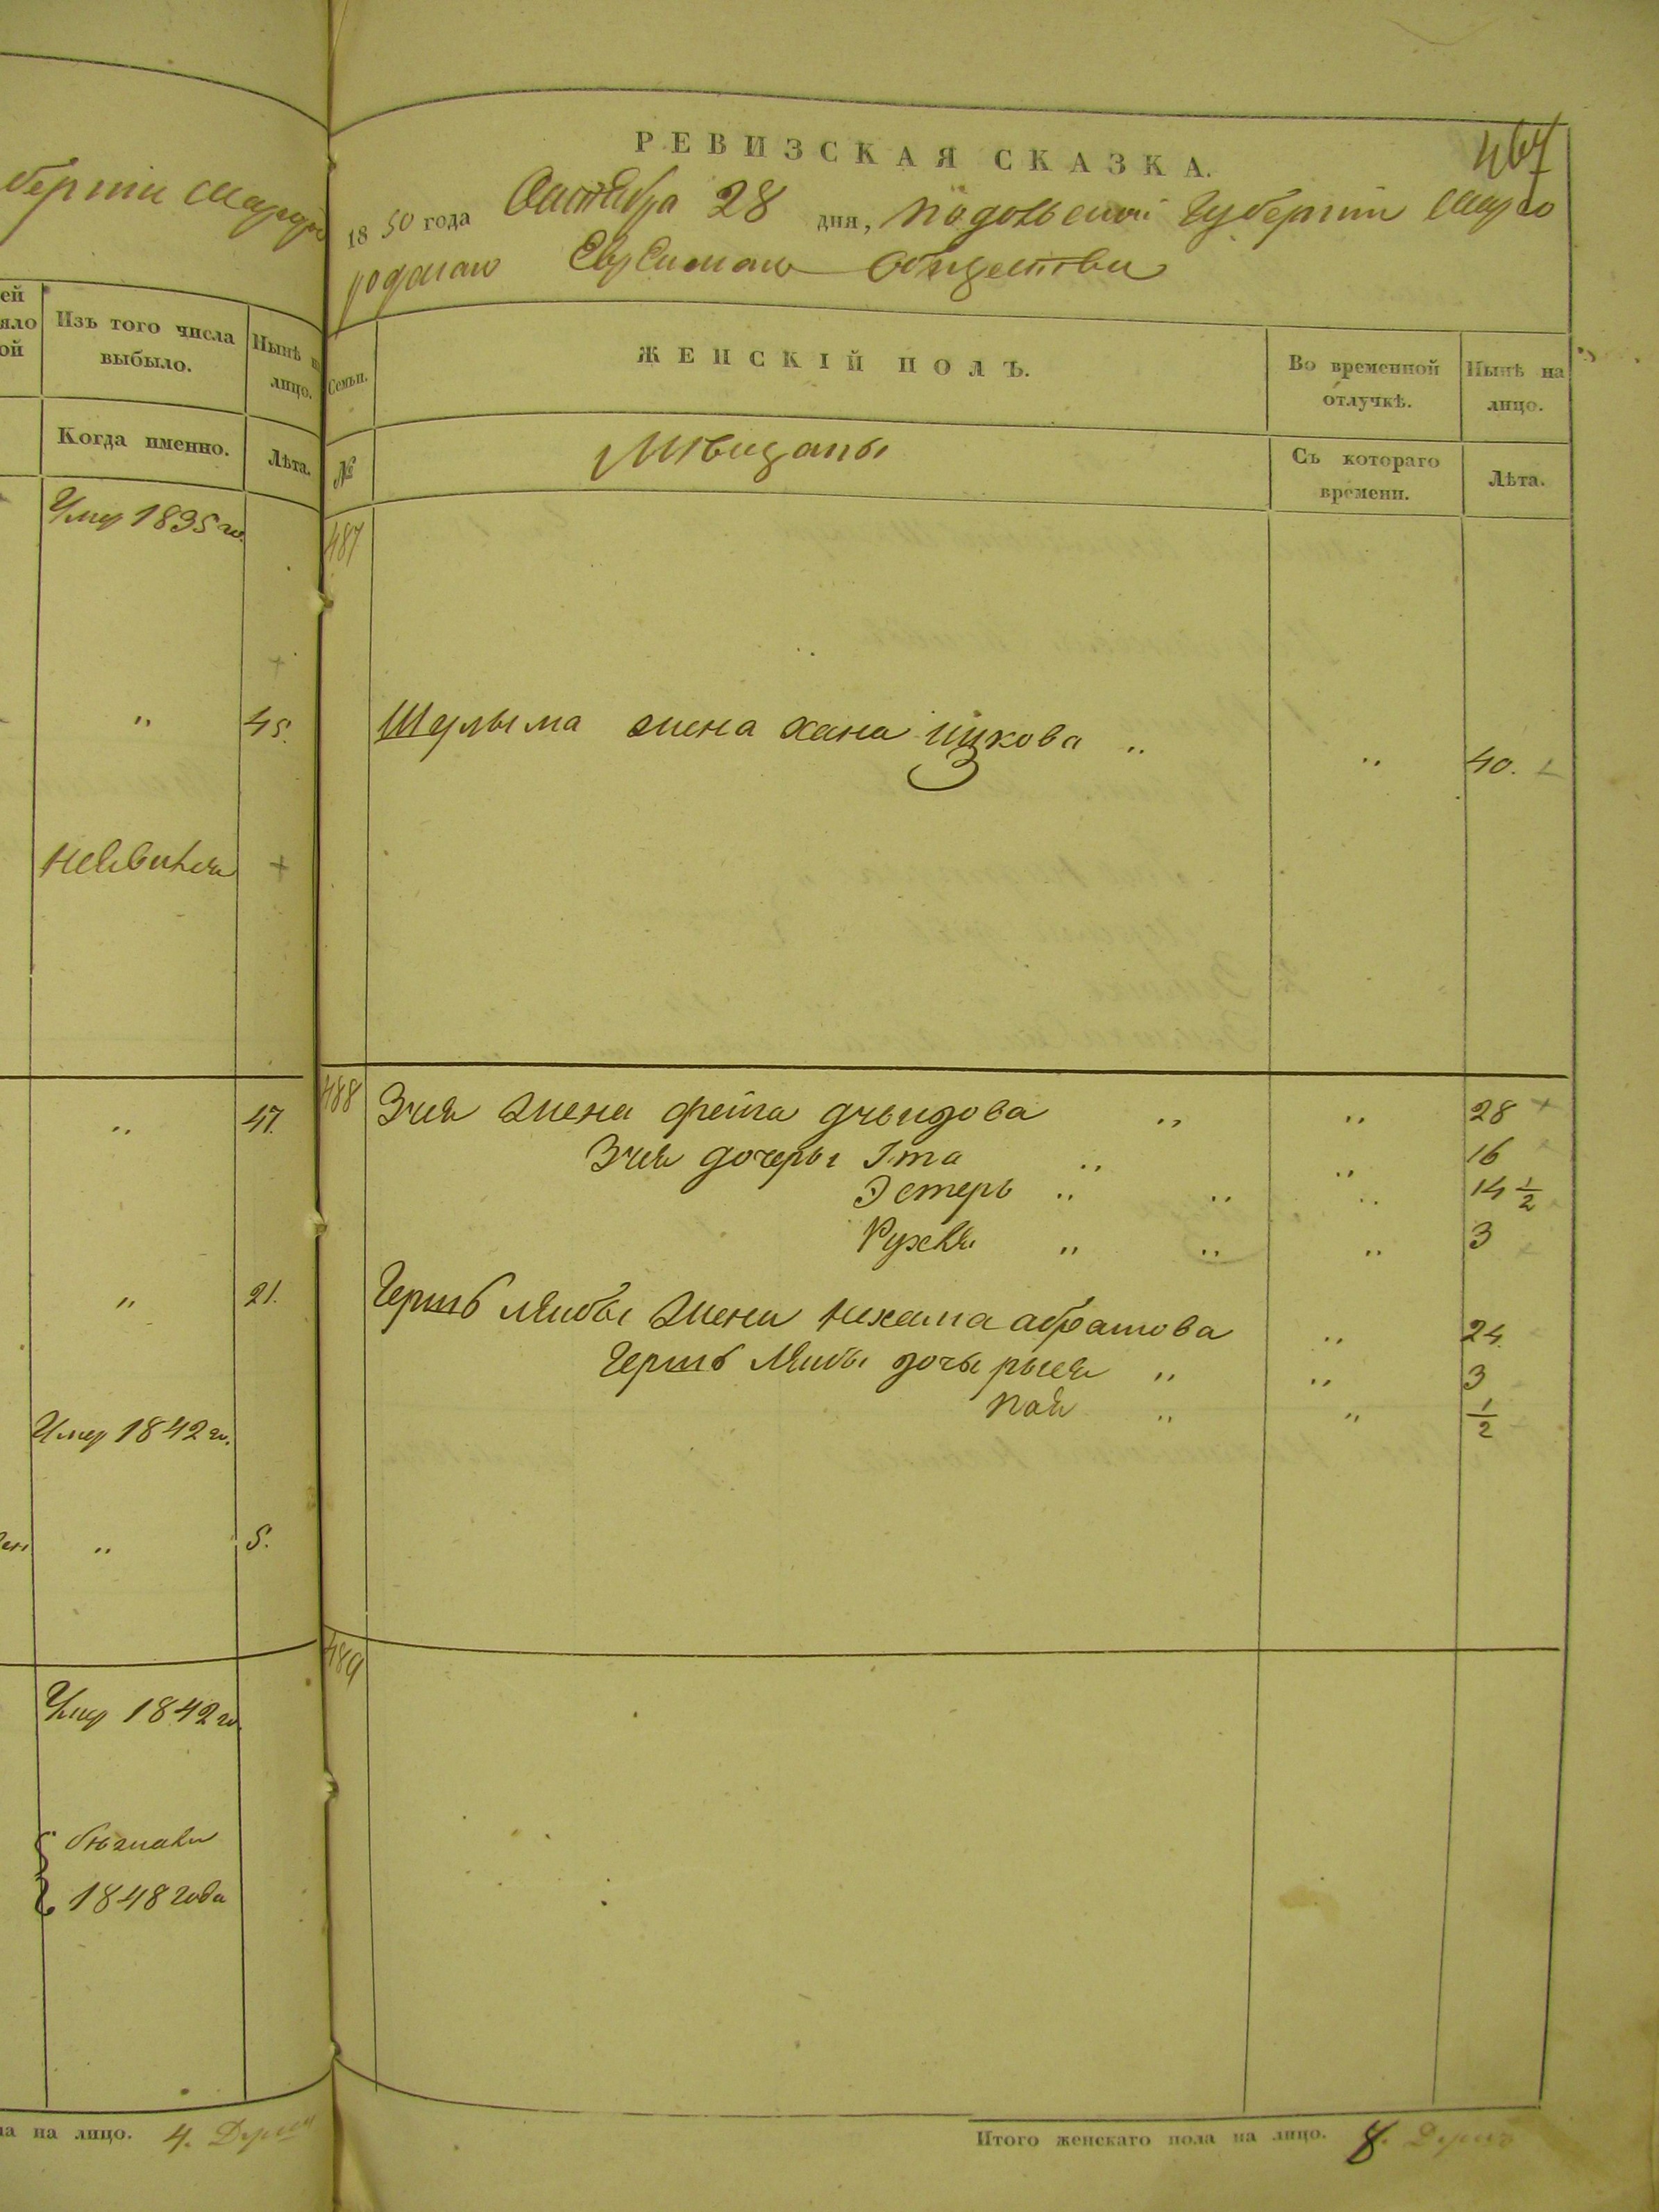 берніи Шарго
ей
яло
ой
Изъ того числа
выбыло.
Нынѣ на
лицо.
Когда именно.
Лѣта.
Умер 1835 го.
" 45.
неявился
" 47.
" 21.
Умер 1842 го.
" 5.
Умер 1842 го.
бѣжали
1848 года
на лицо. 4. Души
467
РЕВИЗСКАЯ СКАЗКА.
1850 года Октября 28 дня, Подольской Губерніи Шарго
родскаго Еврейскаго Общества
Семьи.
ЖЕНСКІЙ ПОЛЪ.
Во временной
отлучкѣ.
Нынѣ на
лицо.
№
Мѣщаны
Съ котораго
времени.
Лѣта.
487
Шулыма жена хана ицкова " " 40.
488
Зися жена фейга дувидова " " 28
Зися дочеры Ита " " 16
Эстеръ " " " 14 1/2
Рухля " " " 3
Гершъ Лейбы жена нехама абрамова " 24
Гершъ Лейбы дочь рыся " " 3
пая " " 1/2
489
Итого женскаго пола на лицо. 8. Душъ